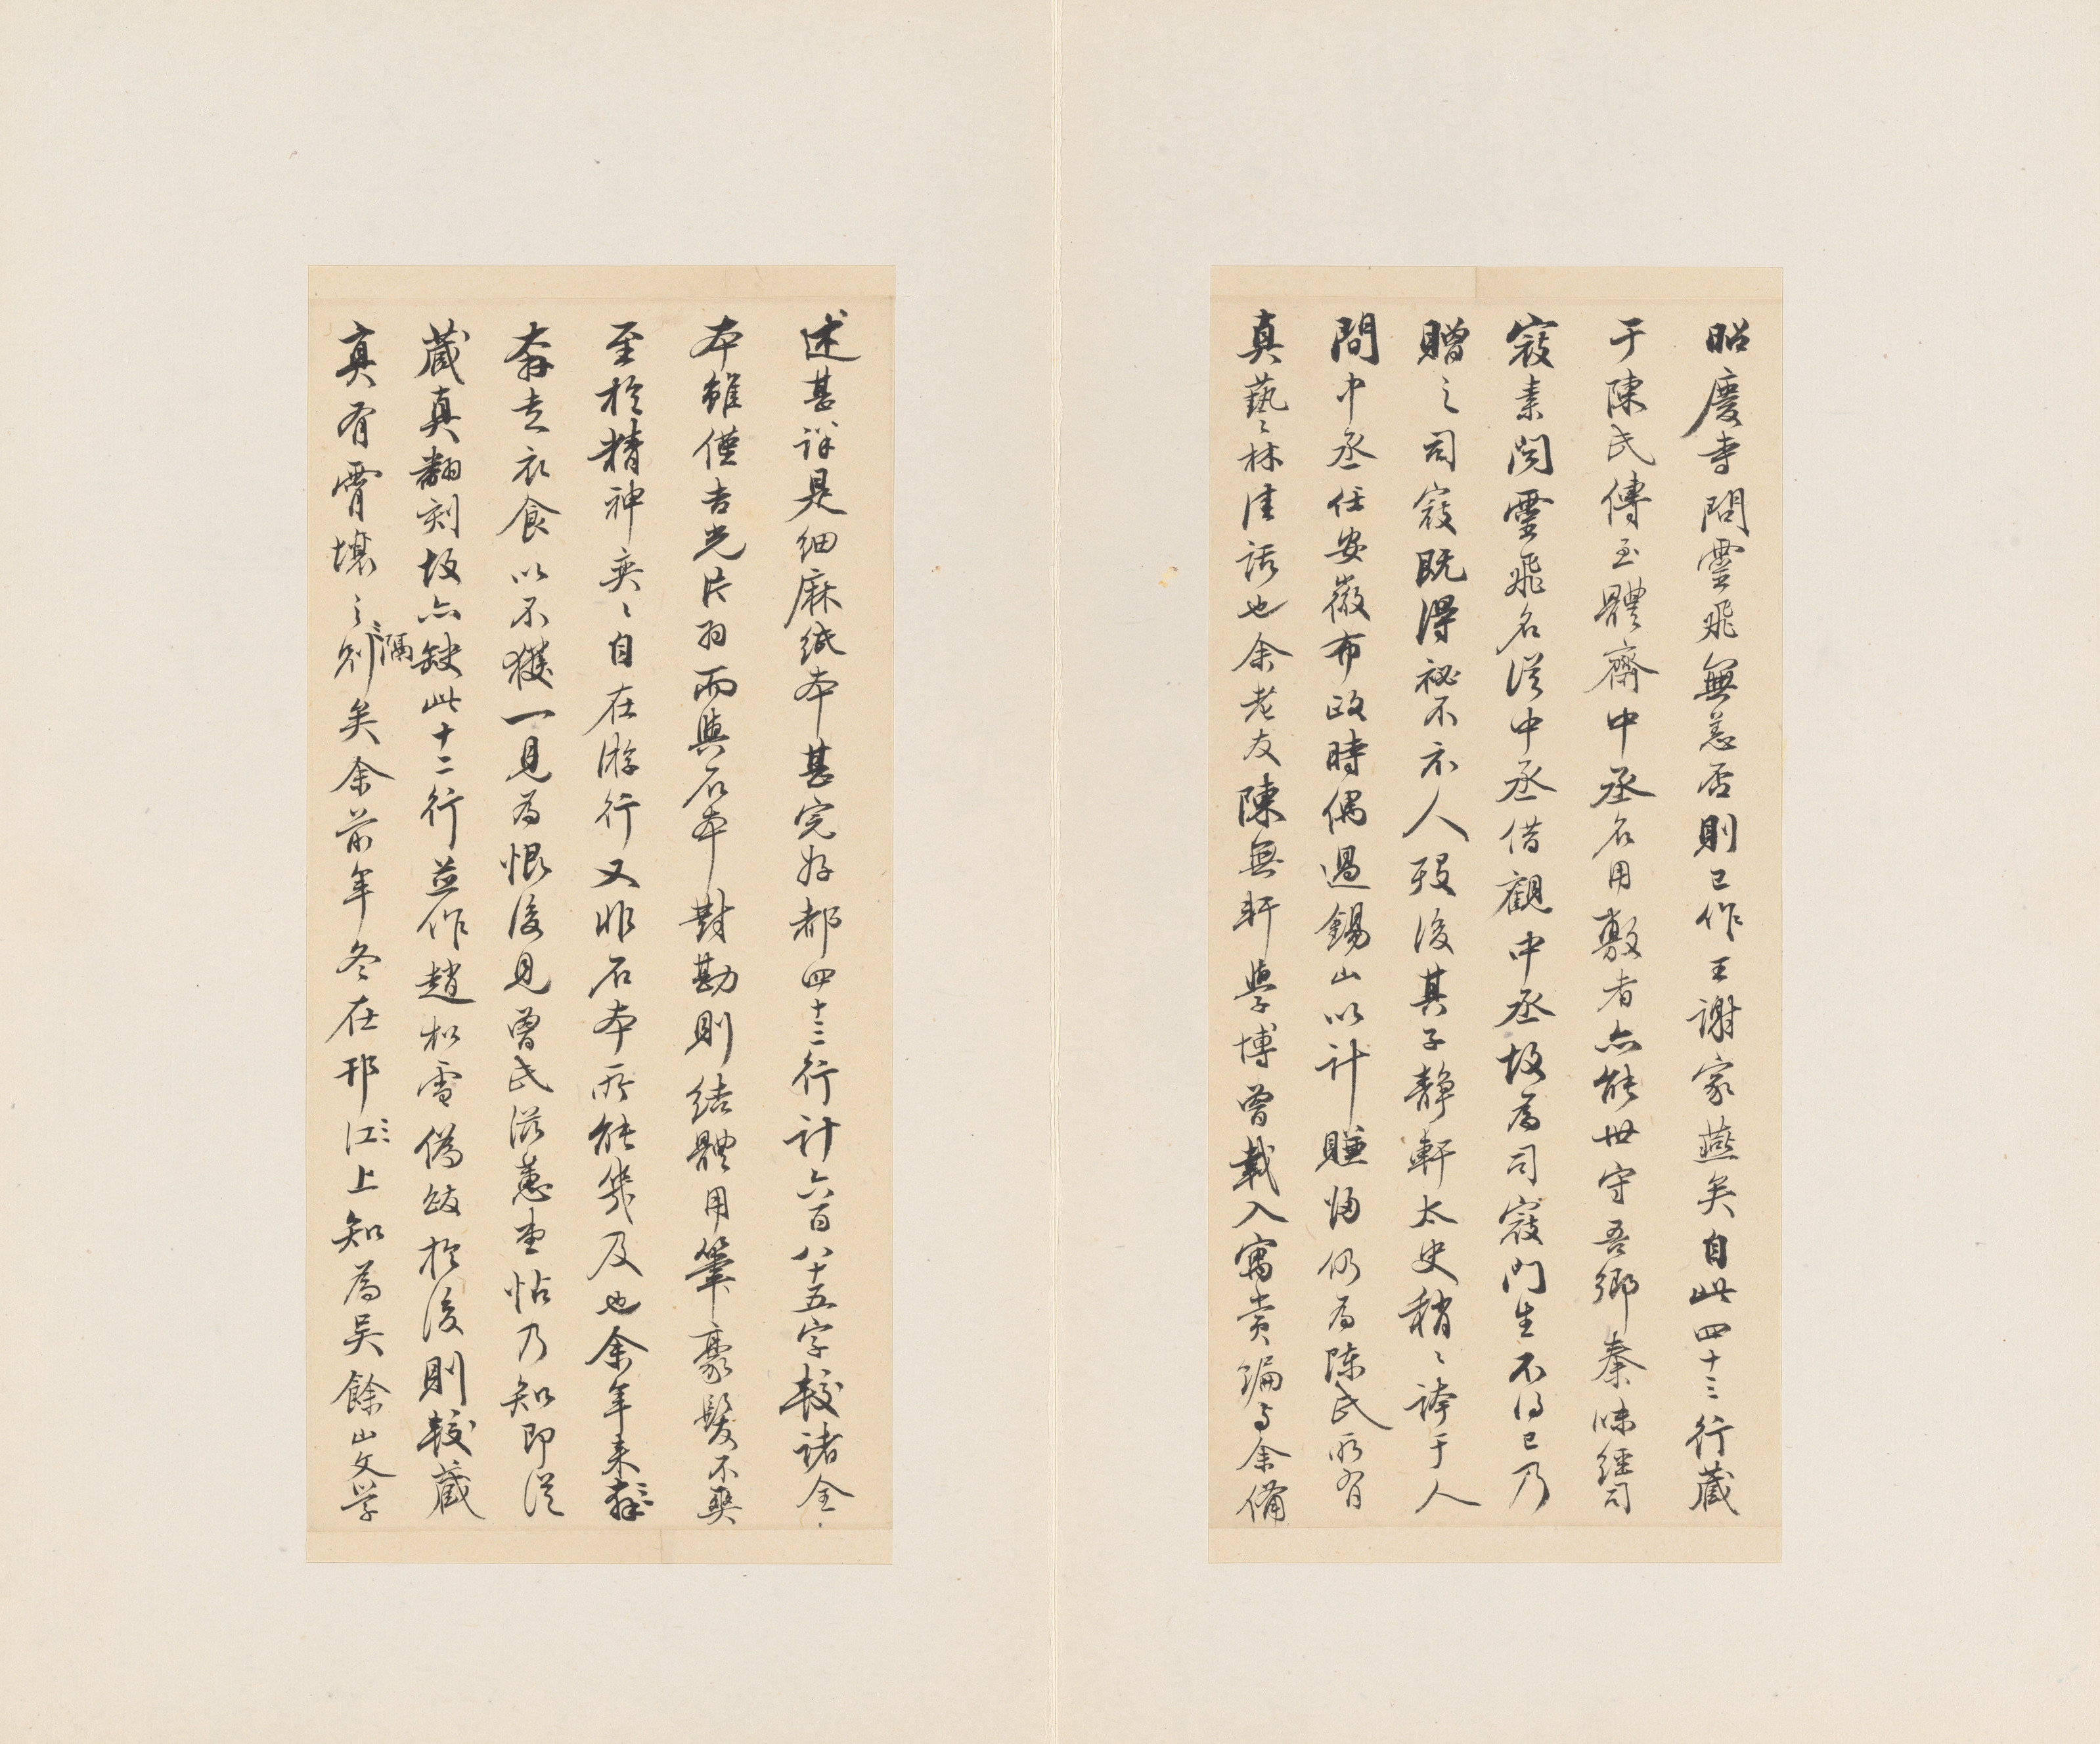 昭慶寺問靈飛無恙否則已作王謝家燕矣自此四十三行藏
于陳氏傳至體齋中丞名用敷者亦能世守吾鄉秦味經司
寇素聞靈飛名從中丞借觀中丞故為司寇門生不得已乃
贈之司寇既得祕不示人歿後其子靜軒太史稍〻誇于人
間中丞任安徽布政時偶過錫山以計賺歸仍為陳氏所有
真藝〻林佳話也余老友陳無軒學博曾載入寓賞編與余備
述甚詳是細麻紙本甚完好都四十三行計六百八十五字較諸全
本雖僅吉光片羽而與石本對勘則結體用筆豪髮不爽
至於精神奕〻自在游行又非石本所能幾及也余年來
奔走衣食以不獲一見為恨後見曾氏滋蕙堂帖乃知即從
藏真翻刻故亦缺此十二行並作趙松雪偽跋於後則較藏
真有霄壤之隔別矣余前年冬在邗江上知為吳餘山文學